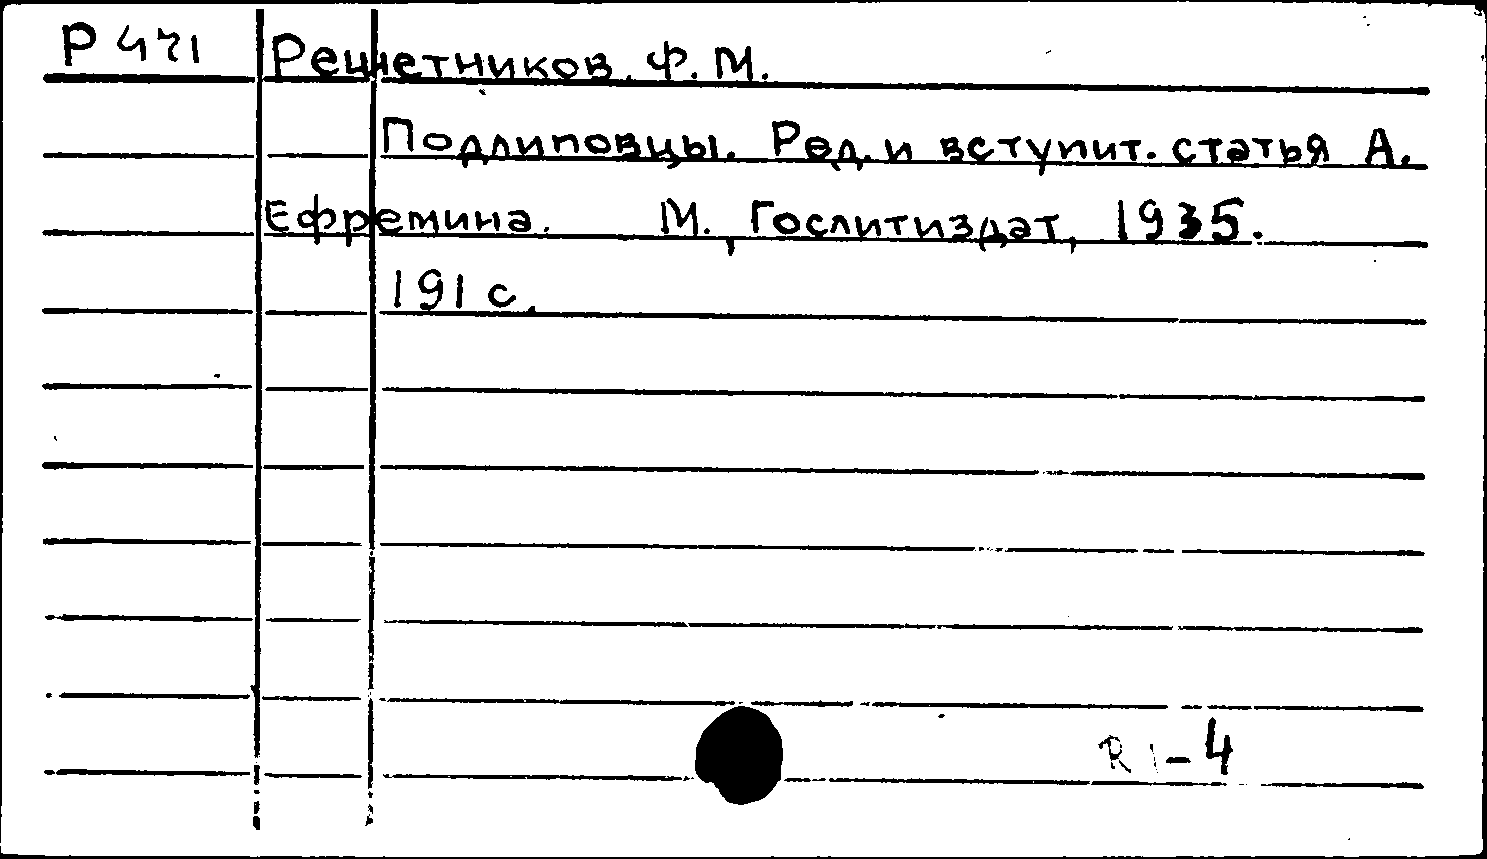 Р 471
Решетников, Ф. М.
Подлиповцы. Ред. и вступит. статья А.
Ефремина. М., Гослитиздат, 1935.
191 с.
R 1-4